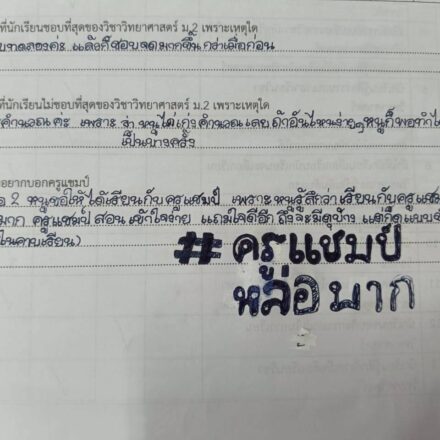 ที่นักเรียนชอบที่สุดของวิชาวิทยาศาสตร์ ม.2 เพราะเหตุใด
ทดลองค่ะ แล้วก็ชอบจดมากขึ้นกว่าเมื่อก่อน
ที่นักเรียนไม่ชอบที่สุดของวิชาวิทยาศาสตร์ ม.2 เพราะเหตุใด
คำนวณค่ะ เพราะว่าหนูไม่เก่งคำนวณเลย ถ้าอันไหนง่ายๆหนูก็พอทำได้
เป็นบางครั้ง
อยากบอกครูแชมป์
2 หนูขอให้ได้เรียนกับครูแชมป์ เพราะหนูรู้สึกว่าเรียนกับครูแชม
มาก ครูแชมป์สอนเข้าใจง่าย แถมใจดีอีก ถึงจะมีดุบ้าง แต่ก็ดุแบบ
ในคาบเรียน)
#ครูแชมป์
หล่อมาก